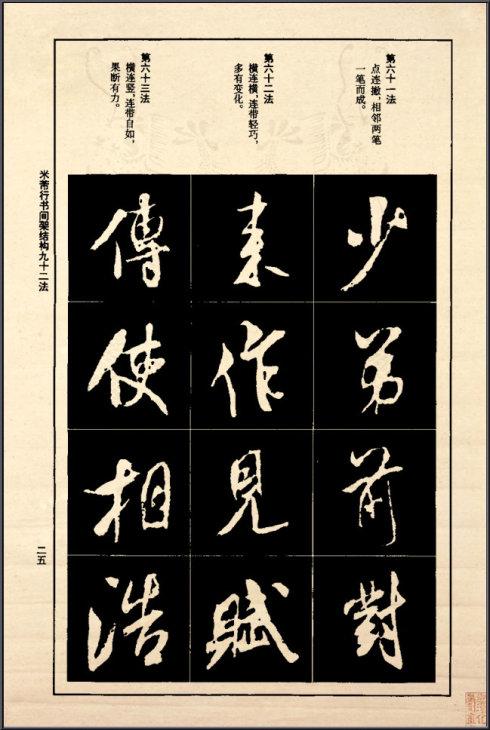 第六十一法
点连撇,相邻两笔
一笔而成。
少
弟
前
對
第六十二法
横连横,连带轻巧,
多有变化。
来
作
見
賦
第六十三法
横连竖,连带自如,
果断有力。
傳
使
相
浩
米芾行书间架结构九十二法
二五